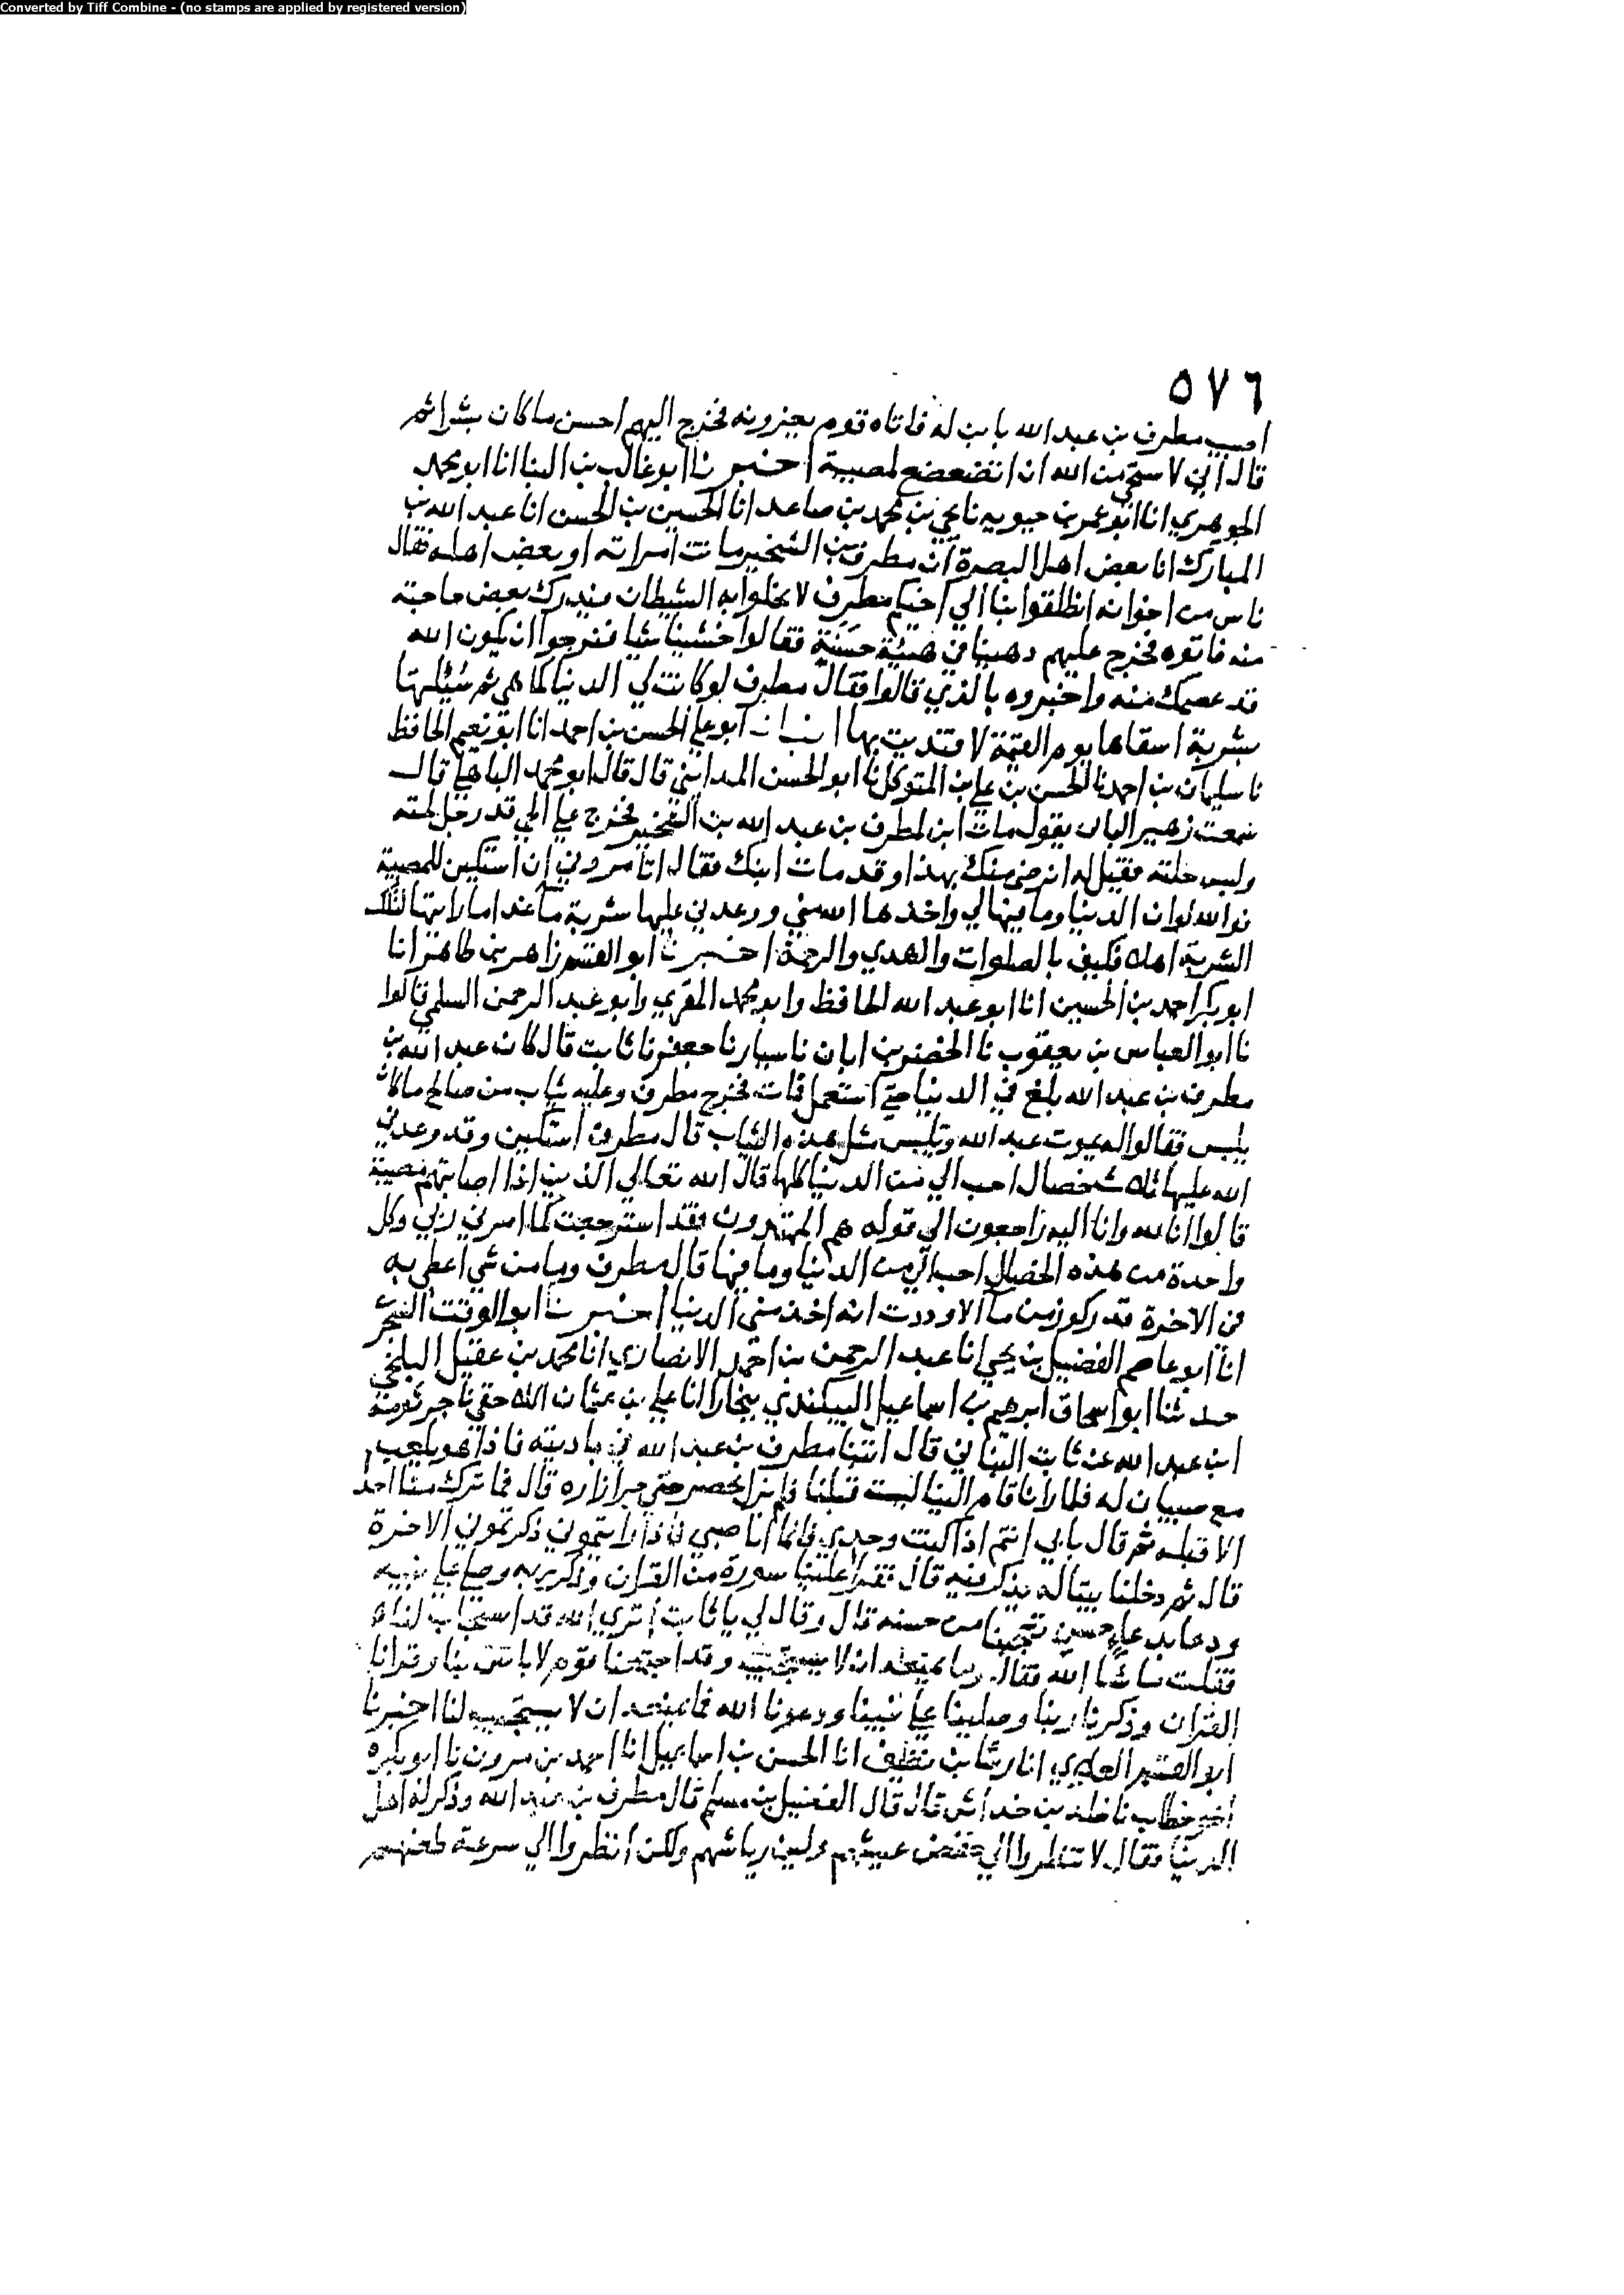 Converted by Tiff Combine - (no stamps are applied by registered version)
٥٧٦
اصيب مطرف بن عبد الله بابن له فاتاه قوم يعزونه فخرج اليهم احسن ما كان بشرا ثم
قال اني لاستحي من الله ان اتضعضع لمصيبة اخبرنا ابو غالب بن البنا انا ابو محمد
الجوهري انا ابو عمر بن حيويه نا يحي بن محمد بن صاعد انا الحسين بن الحسن انا عبد الله بن
المبارك انا بعض اهل البصرة ان مطرف بن الشخير ماتت امراته او بعض اهله فقال
ناس من اخوانه انطلقوا بنا الي اخيكم مطرف لا يخلوا به الشيطان فيدرك بعض حاجته
منه فاتوه فخرج عليهم دهينا في هيئة حسنة فقالوا خشينا شيا فنرجوا ان يكون الله
قد عصمك منه واخبروه بالذي قالوا فقال مطرف لو كانت لي الدنيا كلها هي ثم سئلتها
بشربة اسقاها يوم القيمة لافتديت بها انبانا ابو علي الحسن بن احمد انا ابو نعيم الحافظ
نا سليمان بن احمد نا الحسن بن علي بن المتوكل نا ابو الحسن المدايني قال قال ابو محمد الباهلي قال
سمعت زهير الباب يقول مات ابن لمطرف بن عبد الله بن الشخير فخرج علي الحي قد رجل لمته
ولبس حلته فقيل له انرضي منك بهذا وقد مات ابنك فقال اتامروني ان استكين للمصيبة
فوالله لو ان الدنيا وما فيها لي واخذها الله مني ووعدني عليها شربة ما غدا ما رايتها لتلك
الشربة اهلا فكيف بالصلوات والهدي والرحمة اخبرنا ابو القسم زاهر بن طاهر انا
ابو بكر احمد بن الحسين انا ابو عبد الله الحافظ وابو محمد المقري وابو عبد الرحمن السلمي قالوا
نا ابو العباس بن يعقوب نا الخضر بن ابان نا سيار نا جعفر نا ثابت قال كان عبد الله بن
مطرف بن عبد الله بلغ في الدنيا حتي استعمل فمات فخرج مطرف وعليه ثياب من صالح ما كان
يلبس فقالوا له يموت عبد الله وتلبس مثل هذه الثياب قال مطرف استكين وقد وعدني
الله عليها ثلاث خصال احب الي من الدنيا كلها قال الله تعالي الذين اذا اصابتهم مصيبة
قالوا انا لله وانا اليه راجعون الي قوله هم المهتدون فقد استرجعت كما امرني ربي وكل
واحدة من هذه الخصال احب الي من الدنيا وما فيها قال مطرف وما من شي اعطي به
في الاخرة قدر كوز من ما الا وددت انه اخذ مني الدنيا اخبرنا ابو الوقت السجزي
انا ابو عاصم الفضيل بن يحي انا عبد الرحمن بن احمد الانصاري انا محمد بن عقيل البلخي
حدثنا ابو اسحاق ابرهيم بن اسماعيل البيكندي ببخارا انا علي بن عثمان اللاحقي نا جرثومة
ابن عبد الله عن ثابت البناني قال اتينا مطرف بن عبد الله في باديته فاذا هو يلعب
مع صبيان له فلما رانا قام الينا قبلنا جر ازاره قال فما ترك منا احد
الا قبله ثم قال بابي انتم اذا كنت وحدي فانما انا صبي فاذا رايتموني ذكرتموني الاخرة
قال ثم دخلنا بيتا له يذكر فيه قال فقرا علينا سورة من القران وذكر ربه وصلي علي نبيه
ودعا بدعاء حسن تعجبنا من حسنه قال وقال لي يا ثابت اتري الله قد استجاب لنا
فقلت ما شا الله فقال وما يمنعه ان لا يستجيب وقد اجتمعنا قوم لا باس بنا وقرانا
القران وذكرنا ربنا وصلينا علي نبينا ودعونا الله فما يمنعه ان لا يستجيب لنا اخبرنا
ابو القسم العلوي انا رشا بن نظيف انا الحسن بن اسماعيل انا احمد بن مروان نا ابو بكر
اخو خطاب نا خلد بن خداش قال قال الفضيل بن مسلم قال مطرف بن عبد الله وذكر له اهل
الدنيا فقال لا تنظروا الي خفض عيشهم ولين رياشهم ولكن انظروا الي سرعة ظعنهم